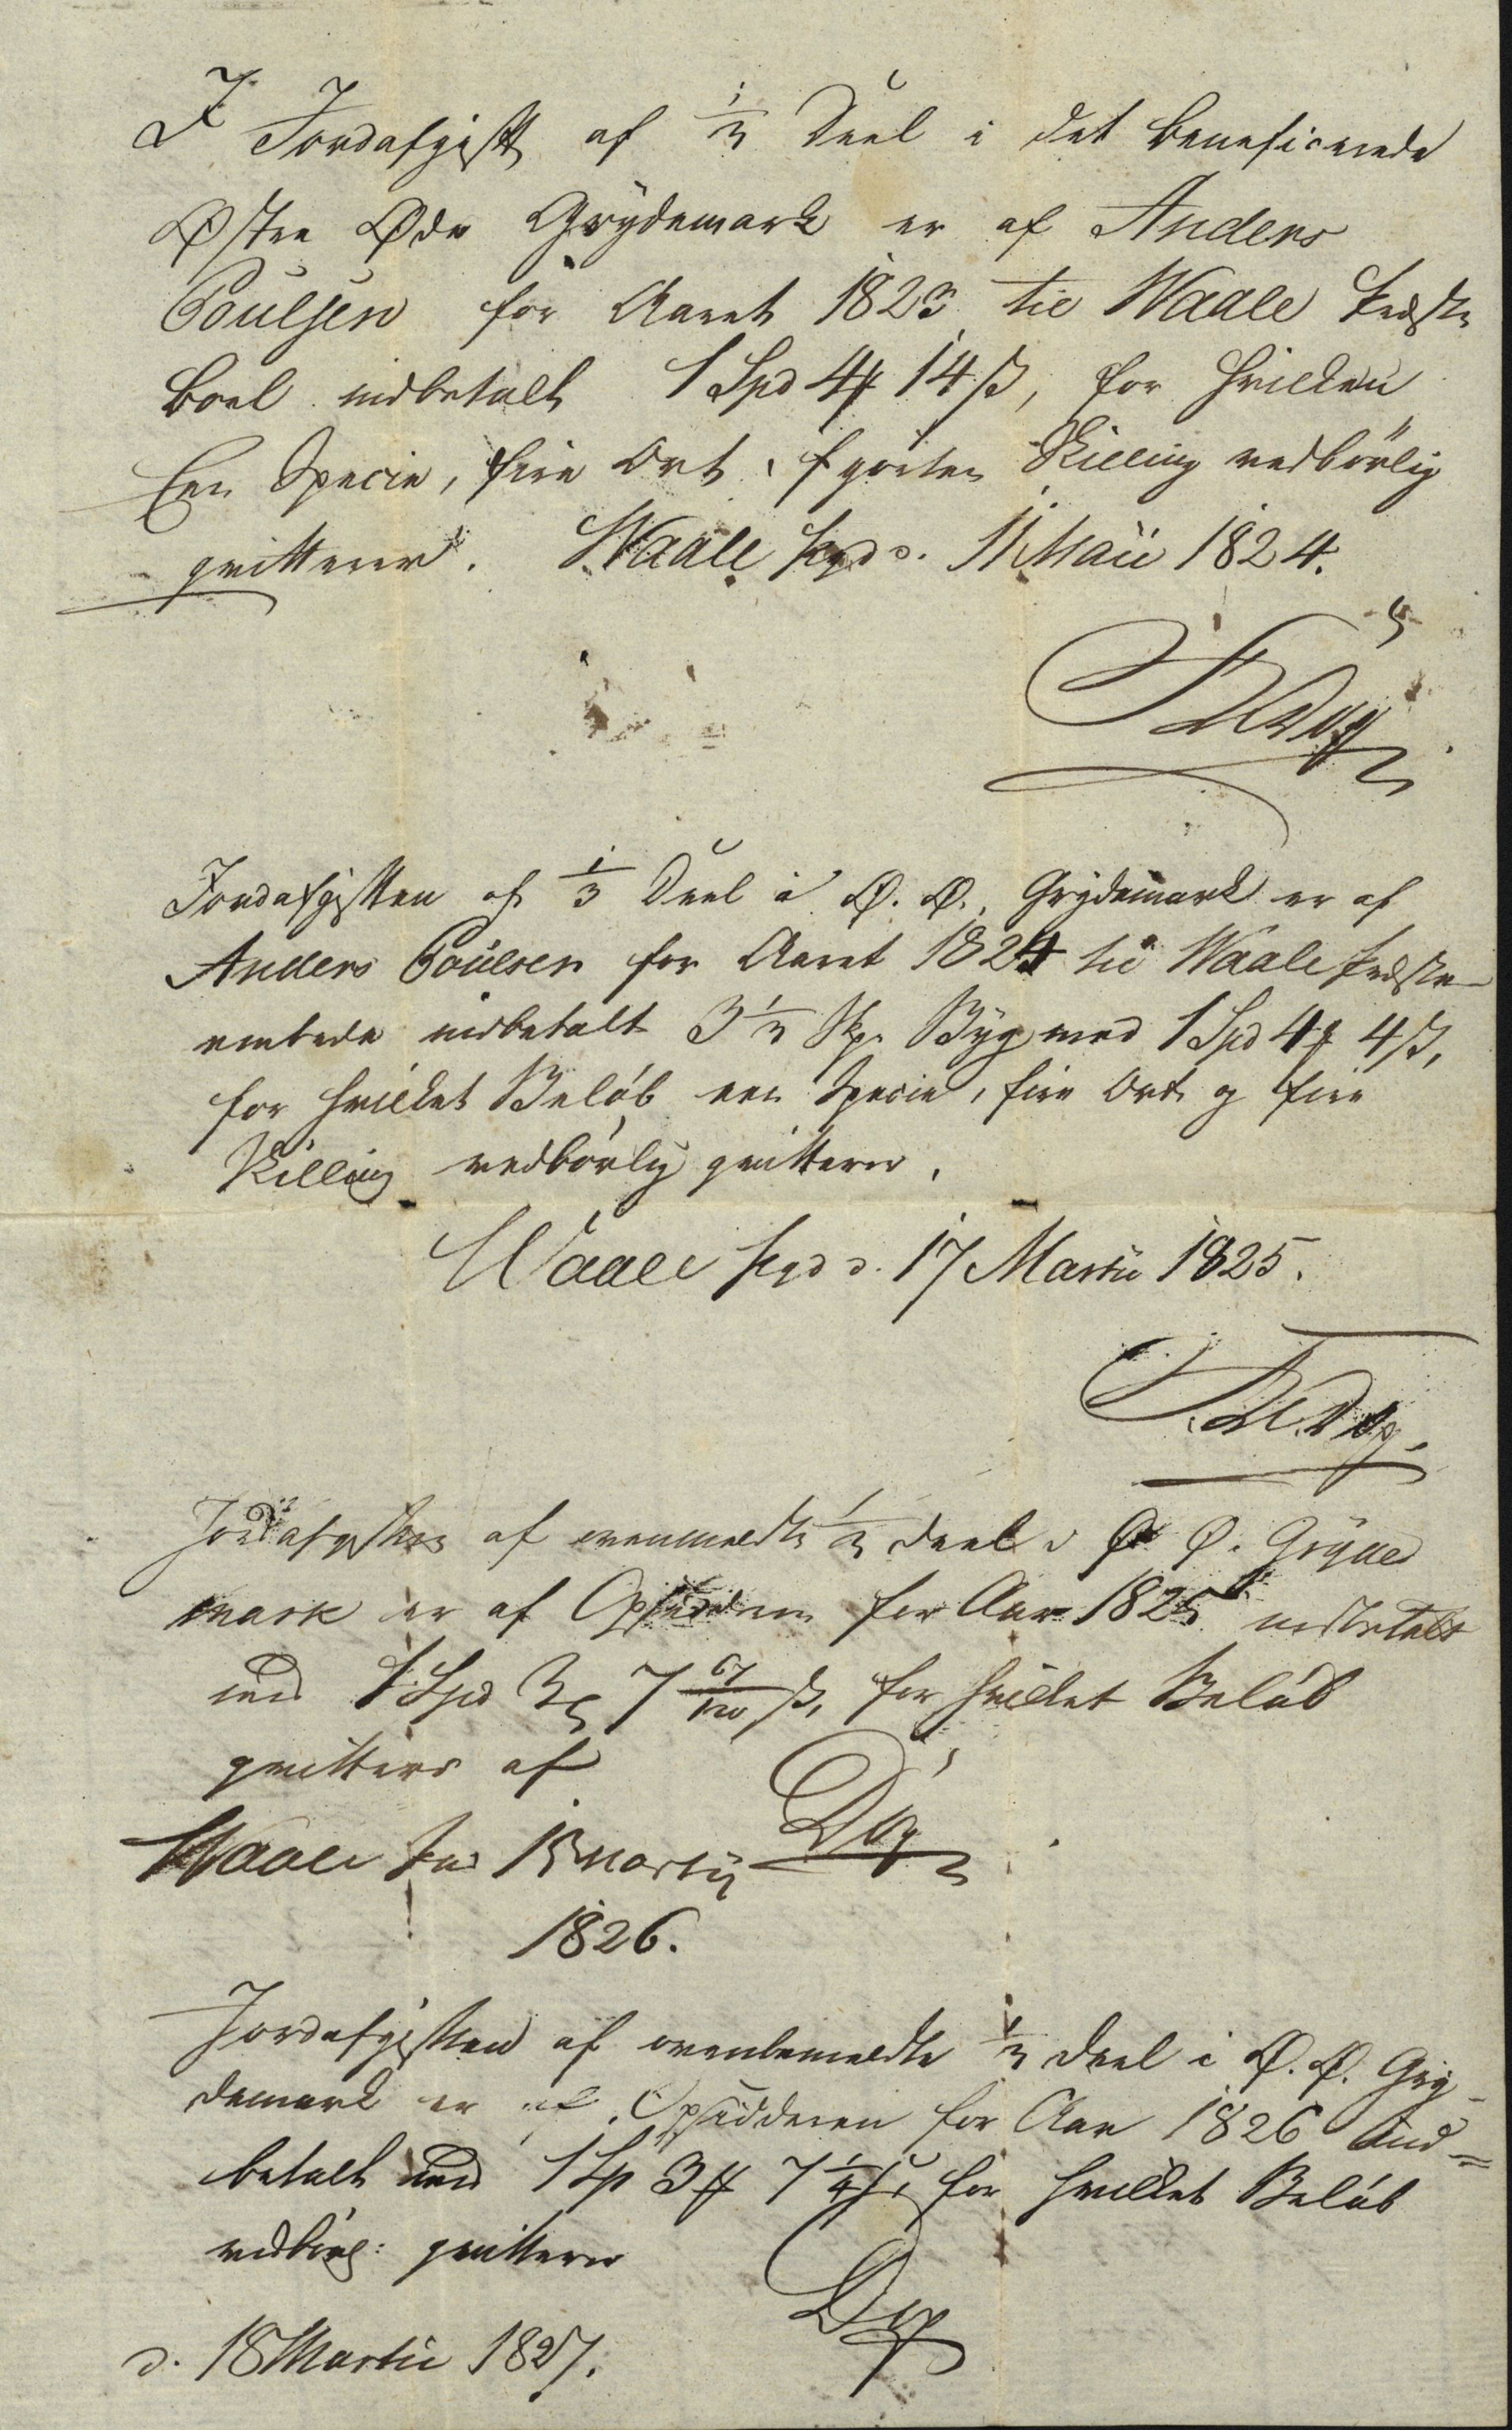 I Jordafgift af 1/3 Deel i det beneficerede
Østre Øde Grÿdemark er af Anders
Poulsen for Aaret 1823 til Waale Præste
boel indbetalt 1 Spd 4 ₰ 14 ß, for hvilken
Een Specie, fire Ort, fjorten Skilling vedbörlig
qvitterer. Waale Prgd d. 11 Maii 1824.
Jordafgiften af 1/3 Deel i Ø. Ø. Grydemark er af
Anders Poulsen for Aaret 1824 til Waale Præste
embede indbetalt 3 1/3 Skp. Byg med 1 Spd 4 ₰ 4 ß,
for hvilket Beløb een Specie, fire Ort og fire
Skilling vedbörlig qvitterer.
Waale Prgd d. 17 Martii 1825.
Jordafgiften af ovenmeldte 1/3 Deel i Ø Ø. Gryde
mark er af Opsidderen for Aar 1825 indbetalt
med 1 Spd 3 ₰ 7 67/120 ß, for hvilket Beløb
qvitteres af
Waale 15 Martii
1826.
Jordafgiften af ovenbemeldte 1/3 Deel i Ø. Ø. Gry-
demark er af Opsidderen for Aar 1826 ind=
betalt med 1 Sp 3 ₰ 7 1/4 ß, for hvilket Beløb
vedbörl: qvitterer
d. 18 Martii 1827.